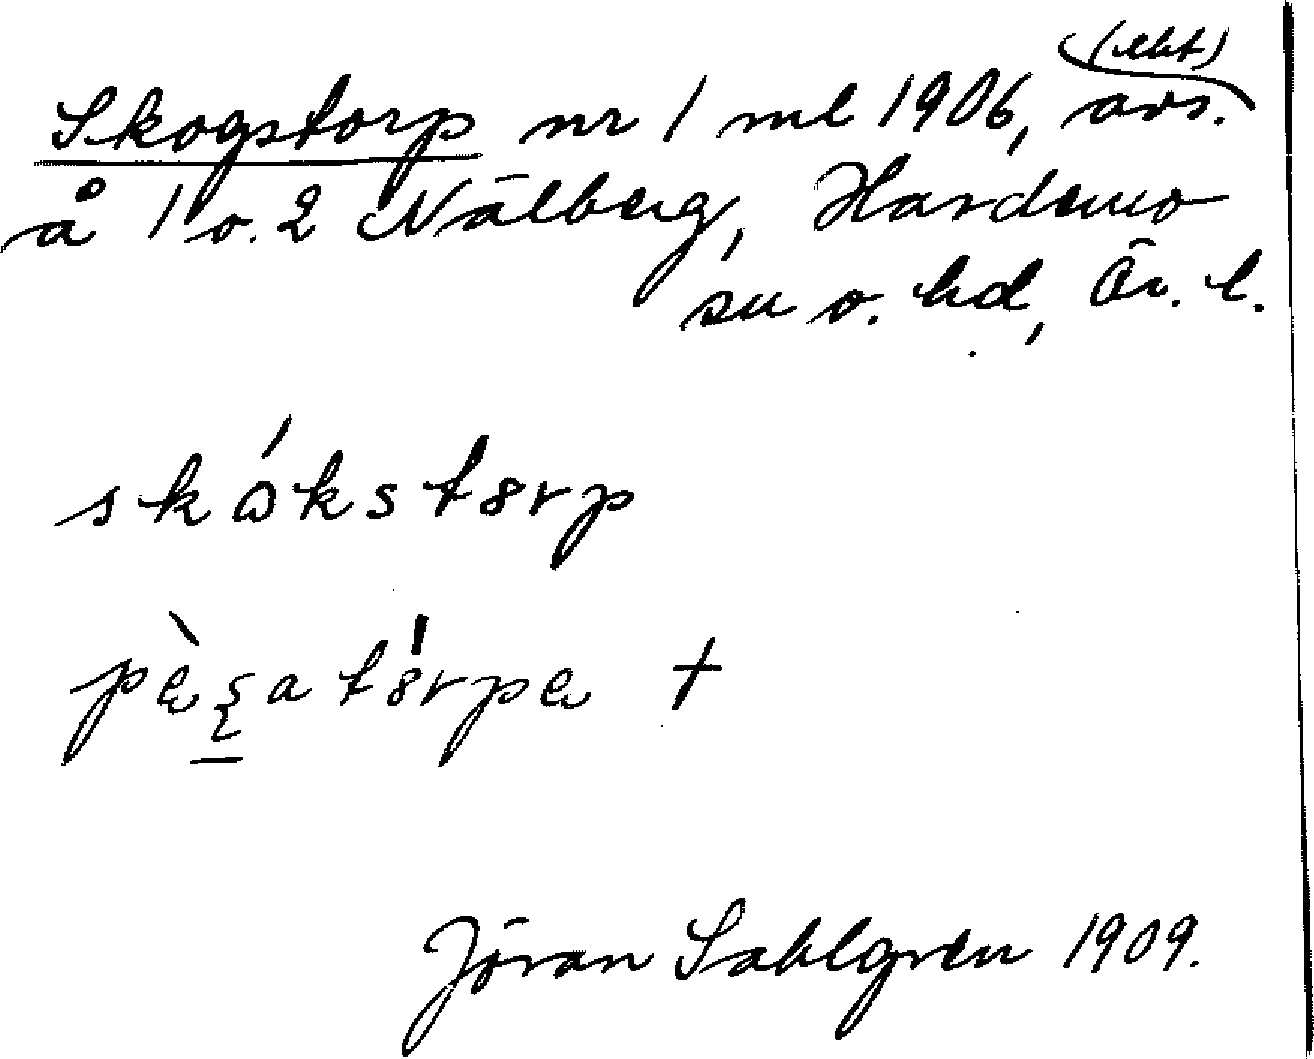 Skogstorp nr 1 ml 1906, (ebt) avs.
å 1 o. 2 Nälberg, Hardemo
sn o. hd, Ör. l.
skɷ́kstɤrp
pe̝a tɤrpe †
Jöran Sahlgren 1909.